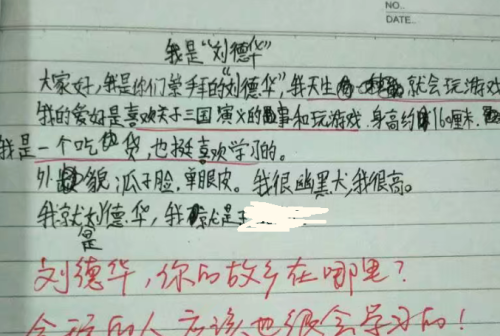 NO.
DATE.
我是“刘德华”
大家好，我是你们崇拜的“刘德华”，我天生就会玩游戏
我的爱好是喜欢关于三国演义的故事和玩游戏.身高约160厘米.
我是一个吃货，也挺喜欢学习的。
外貌：瓜子脸，单眼皮。我很幽黑犬，我很高。
我就是刘德华，我就是
刘德华，你的故乡在哪里？
会玩的人应该也很会学习的！